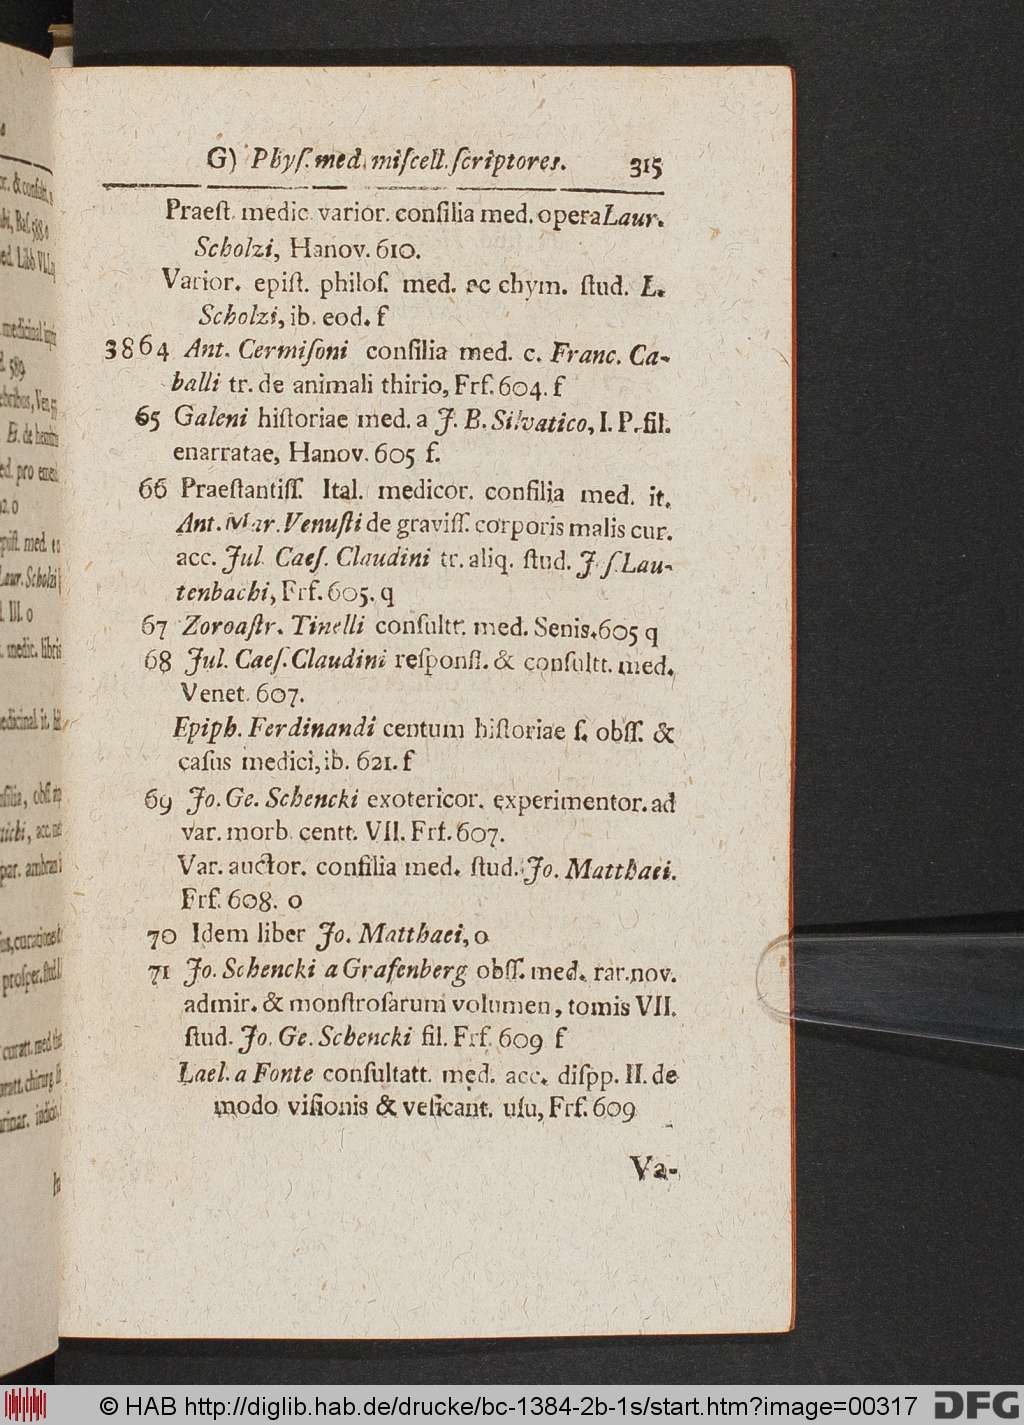 G) Phyſ. med. miſcell. ſcriptores. 315
Praeſt. medic. varior. conſilia med. opera Laur.
Scholzi, Hanov. 610.
Varior. epiſt. philoſ. med. ac chym. ſtud. L.
Scholzi, ib. eod. f
3864 Ant. Cermiſoni conſilia med. c. Franc. Ca-
balli tr. de animali thirio, Frf. 604. f
65 Galeni hiſtoriae med. a J. B. Silvatico, I. P. fil.
enarratae, Hanov. 605 f.
66 Praeſtantiſſ. Ital. medicor. conſilia med. it.
Ant. Mar. Venuſti de graviſſ. corporis malis cur.
acc. Jul. Caeſ. Claudini tr. aliq. ſtud. J. ſ. Lau-
tenbachi, Frf. 605. q
67 Zoroaſtr. Tinelli conſultt. med. Senis. 605 q
68 Jul. Caeſ. Claudini reſponſ. & conſultt. med.
Venet. 607.
Epiph. Ferdinandi centum hiſtoriae ſ. obſſ. &
caſus medici, ib. 621. f
69 Jo. Ge. Schencki exotericor. experimentor. ad
var. morb. centt. VII. Frf. 607.
Var. auctor. conſilia med. ſtud. Jo. Matthaei.
Frf. 608. o
70 Idem liber Jo. Matthaei, o
71 Jo. Schencki a Grafenberg obſſ. med. rar. nov.
admir. & monſtroſarum volumen, tomis VII.
ſtud. Jo. Ge. Schencki fil. Frf. 609 f
Lael. a Fonte conſultatt. med. acc. diſpp. II. de
modo viſionis & veſicant. uſu, Frf. 609
Va-
© HAB http://diglib.hab.de/drucke/bc-1384-2b-1s/start.htm?image=00317
DFG